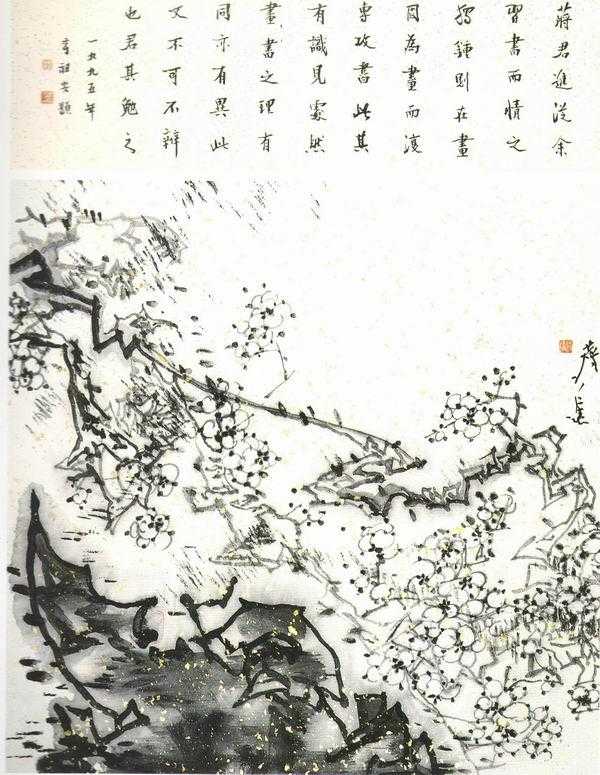 蔣君進從余
習書而情之
獨鍾則在畫
因為畫而復
專攻書此其
有識見處然
畫書之理有
同亦有異此
又不可不辨
也君其勉之
一九九五年
章祖安題